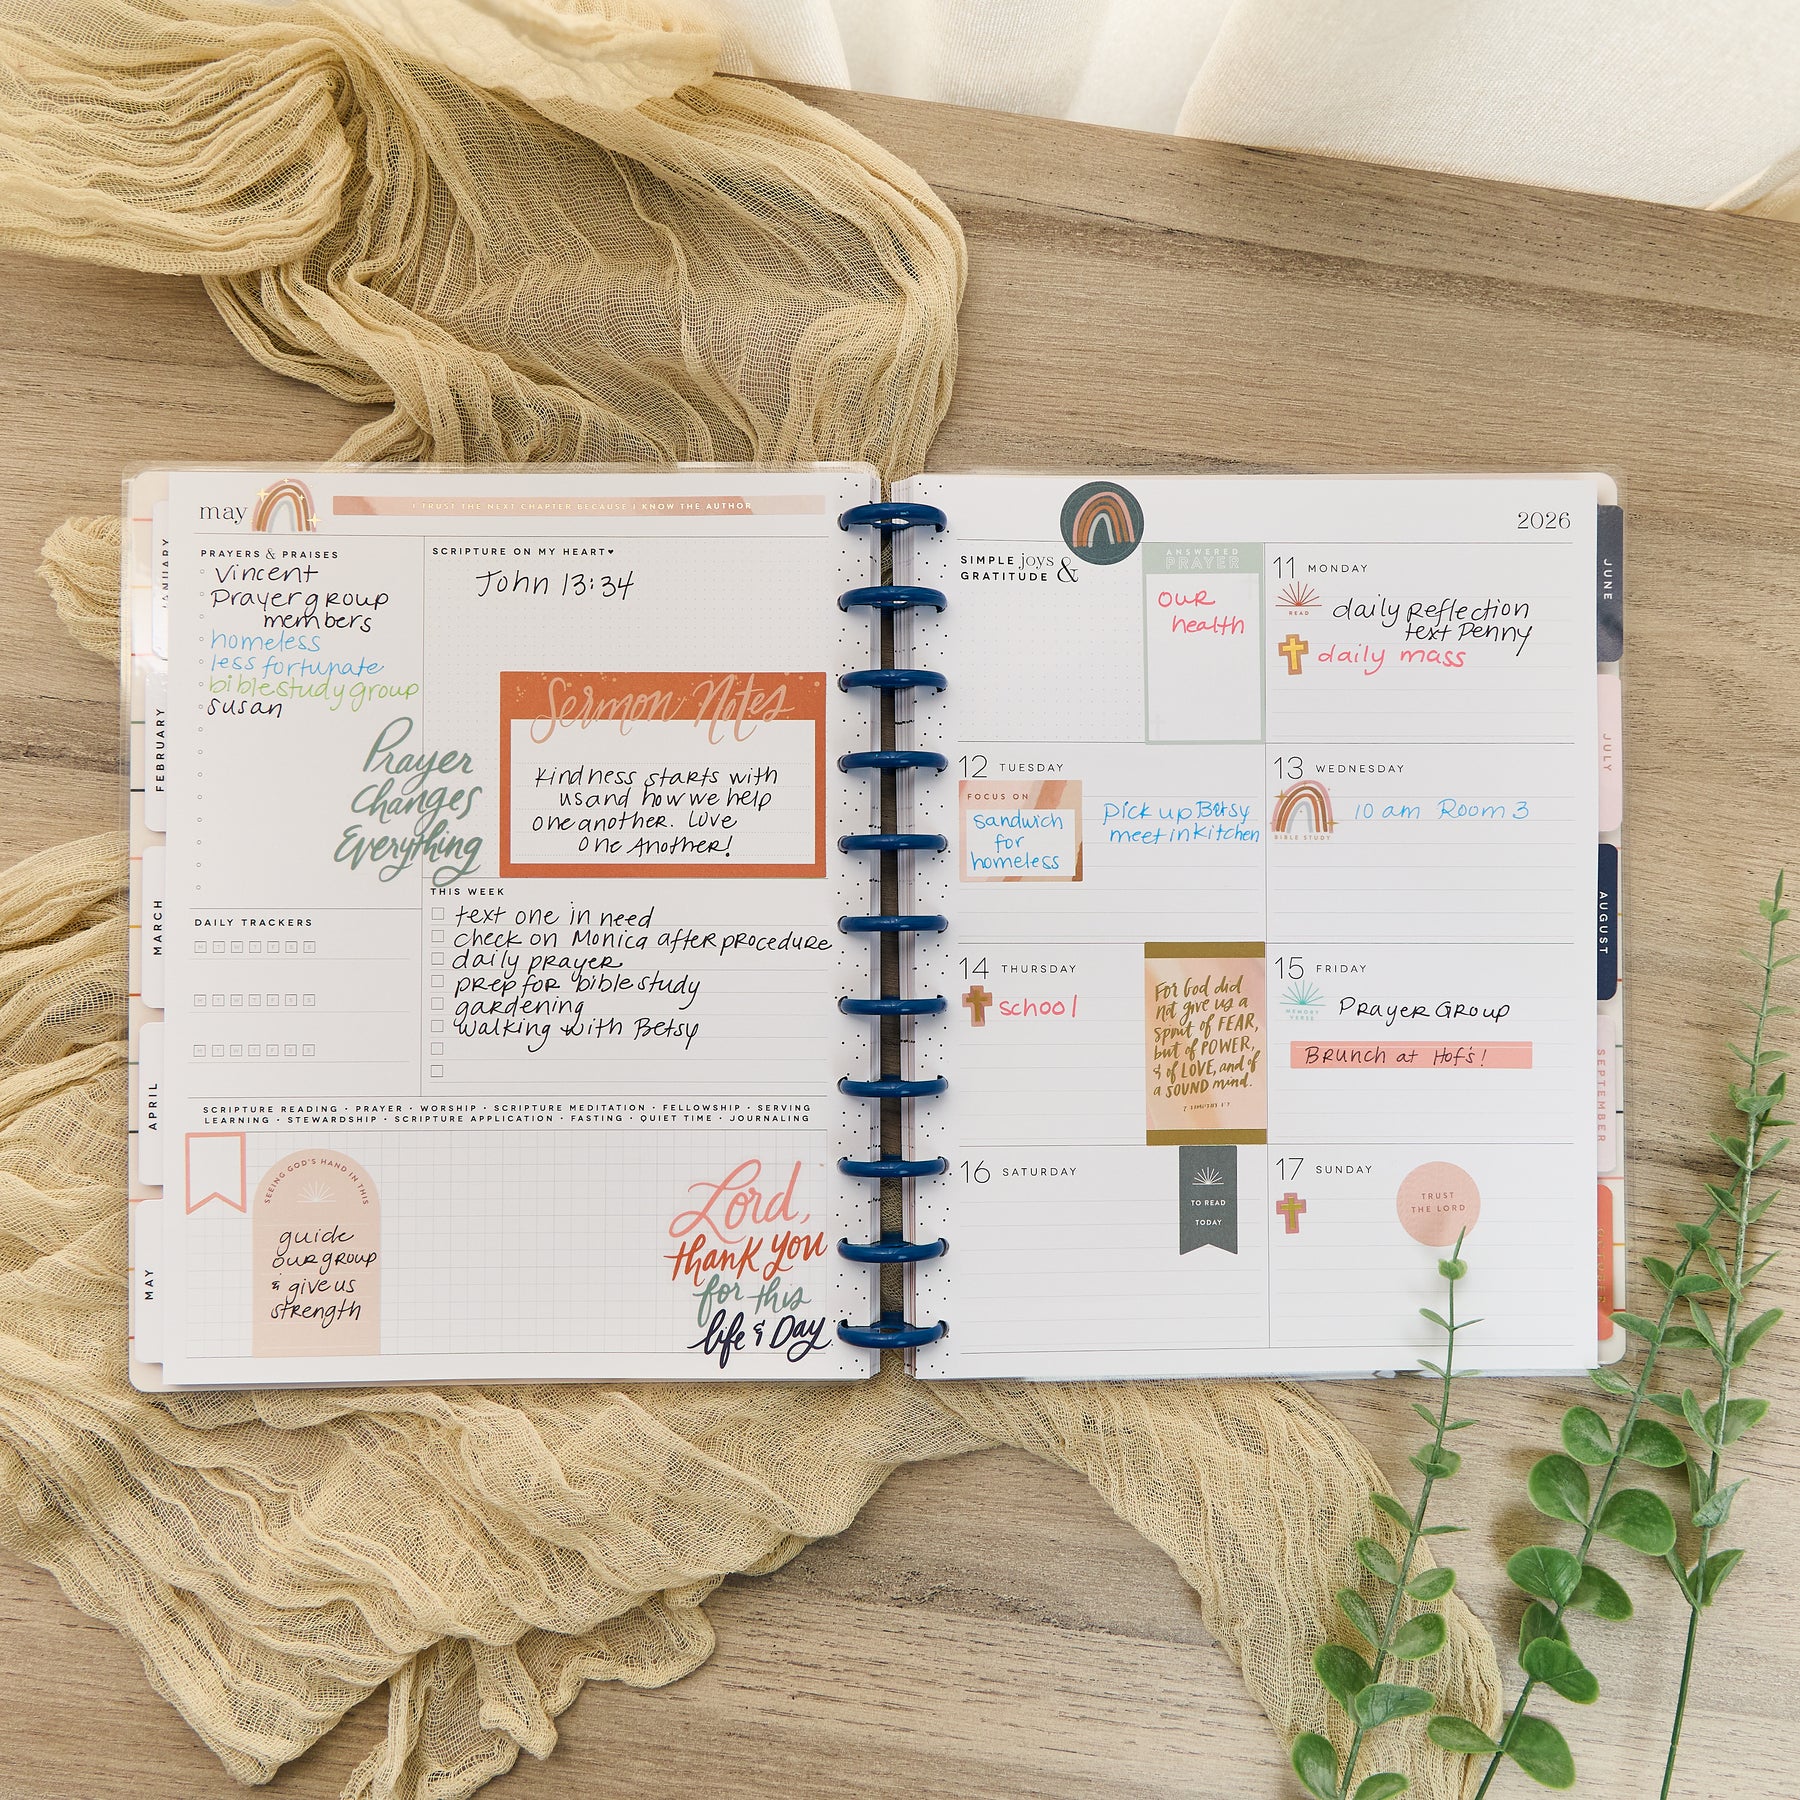 may
I TRUST THE NEXT CHAPTER BECAUSE I KNOW THE AUTHOR
PRAYERS & PRAISES
Vincent
Prayer group
members
homeless
less fortunate
bible study group
susan
Prayer
Changes
Everything
SCRIPTURE ON MY HEART♥
John 13:34
Sermon Notes
Kindness starts with
us and how we help
one another. Love
one Another!
THIS WEEK
text one in need
check on Monica after procedure
daily prayer
prep for bible study
gardening
walking with Betsy
DAILY TRACKERS
M T W T F S S
M T W T F S S
M T W T F S S
SCRIPTURE READING • PRAYER • WORSHIP • SCRIPTURE MEDITATION • FELLOWSHIP • SERVING
LEARNING • STEWARDSHIP • SCRIPTURE APPLICATION • FASTING • QUIET TIME • JOURNALING
SEEING GOD'S HAND IN THIS
guide
our group
& give us
strength
Lord,
thank you
for this
life & Day
2026
SIMPLE joys &
GRATITUDE
ANSWERED
PRAYER
our
health
11 MONDAY
READ
daily Reflection
text Penny
daily mass
12 TUESDAY
FOCUS ON
sandwich
for
homeless
pick up Betsy
meet in kitchen
13 WEDNESDAY
BIBLE STUDY
10 am Room 3
14 THURSDAY
school
For God did
not give us a
spirit of FEAR,
but of POWER,
& of LOVE, and of
a SOUND mind.
2 TIMOTHY 1:7
15 FRIDAY
MEMORY
VERSE
Prayer Group
Brunch at Hof's!
16 SATURDAY
TO READ
TODAY
17 SUNDAY
TRUST
THE LORD
JANUARY
FEBRUARY
MARCH
APRIL
MAY
JUNE
JULY
AUGUST
SEPTEMBER
OCTOBER